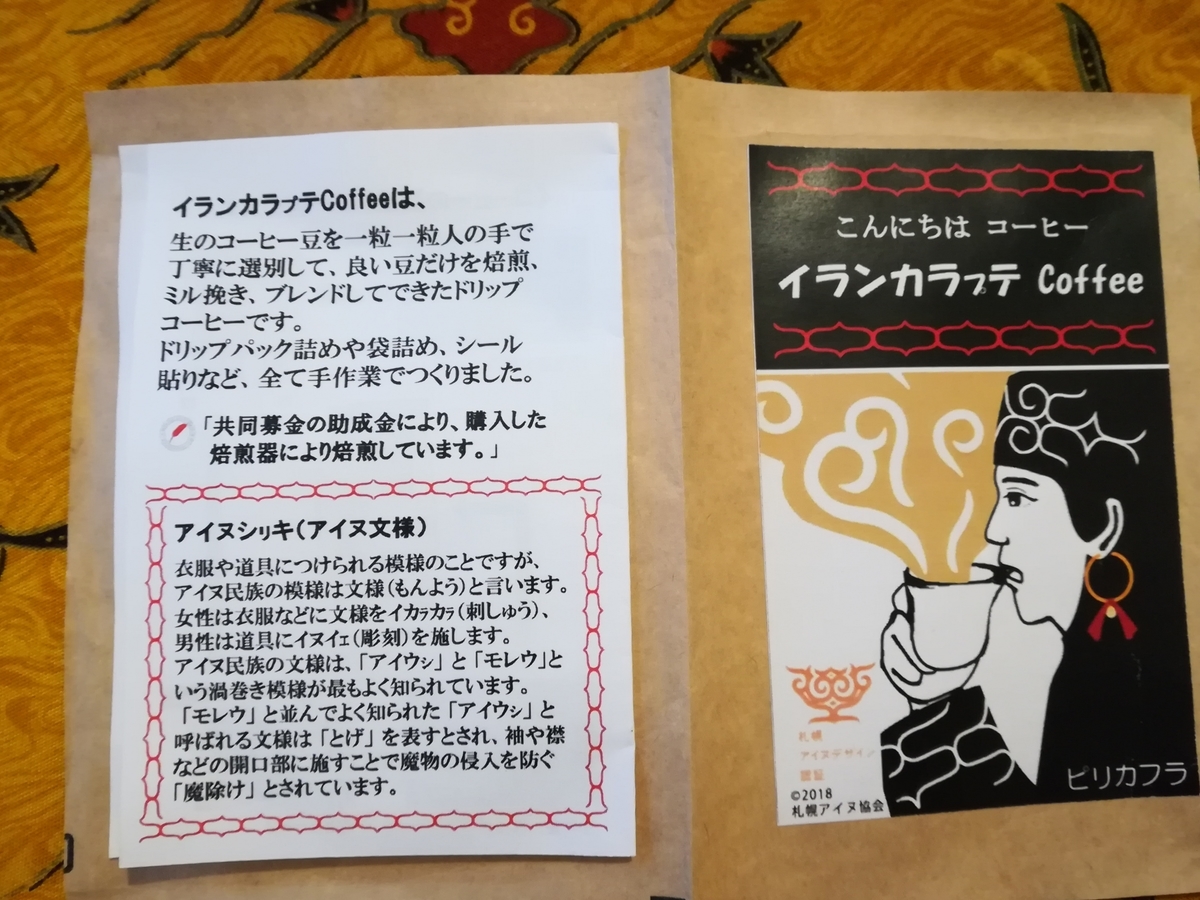 イランカラㇷ゚テCoffeeは、
生のコーヒー豆を一粒一粒人の手で
丁寧に選別して、良い豆だけを焙煎、
ミル挽き、ブレンドしてできたドリップ
コーヒーです。
ドリップパック詰めや袋詰め、シール
貼りなど、全て手作業でつくりました。
「共同募金の助成金により、購入した
焙煎器により焙煎しています。」
アイヌシㇼキ(アイヌ文様)
衣服や道具につけられる模様のことですが、
アイヌ民族の模様は文様(もんよう)と言います。
女性は衣服などに文様をイカㇻカㇻ(刺しゅう)、
男性は道具にイヌイェ(彫刻)を施します。
アイヌ民族の文様は、「アイウㇱ」と「モレウ」と
いう渦巻き模様が最もよく知られています。
「モレウ」と並んでよく知られた「アイウㇱ」と
呼ばれる文様は「とげ」を表すとされ、袖や襟
などの開口部に施すことで魔物の侵入を防ぐ
「魔除け」とされています。
こんにちは コーヒー
イランカラㇷ゚テ Coffee
札幌
アイヌデザイン
認証
©2018
札幌アイヌ協会
ピリカフラ